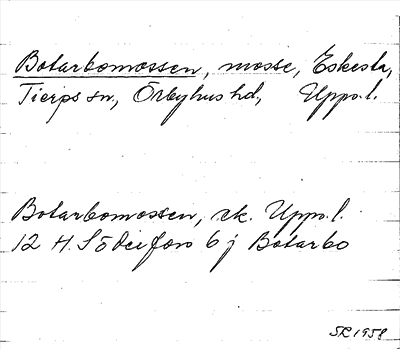 Botarbomossen, mosse, Eskesta,
Tierps sn, Örbyhus hd, Upps.l.
Botarbomossen, ek. Upps.l.
12 H. Söderfors 6 j Botarbo
SR 1958